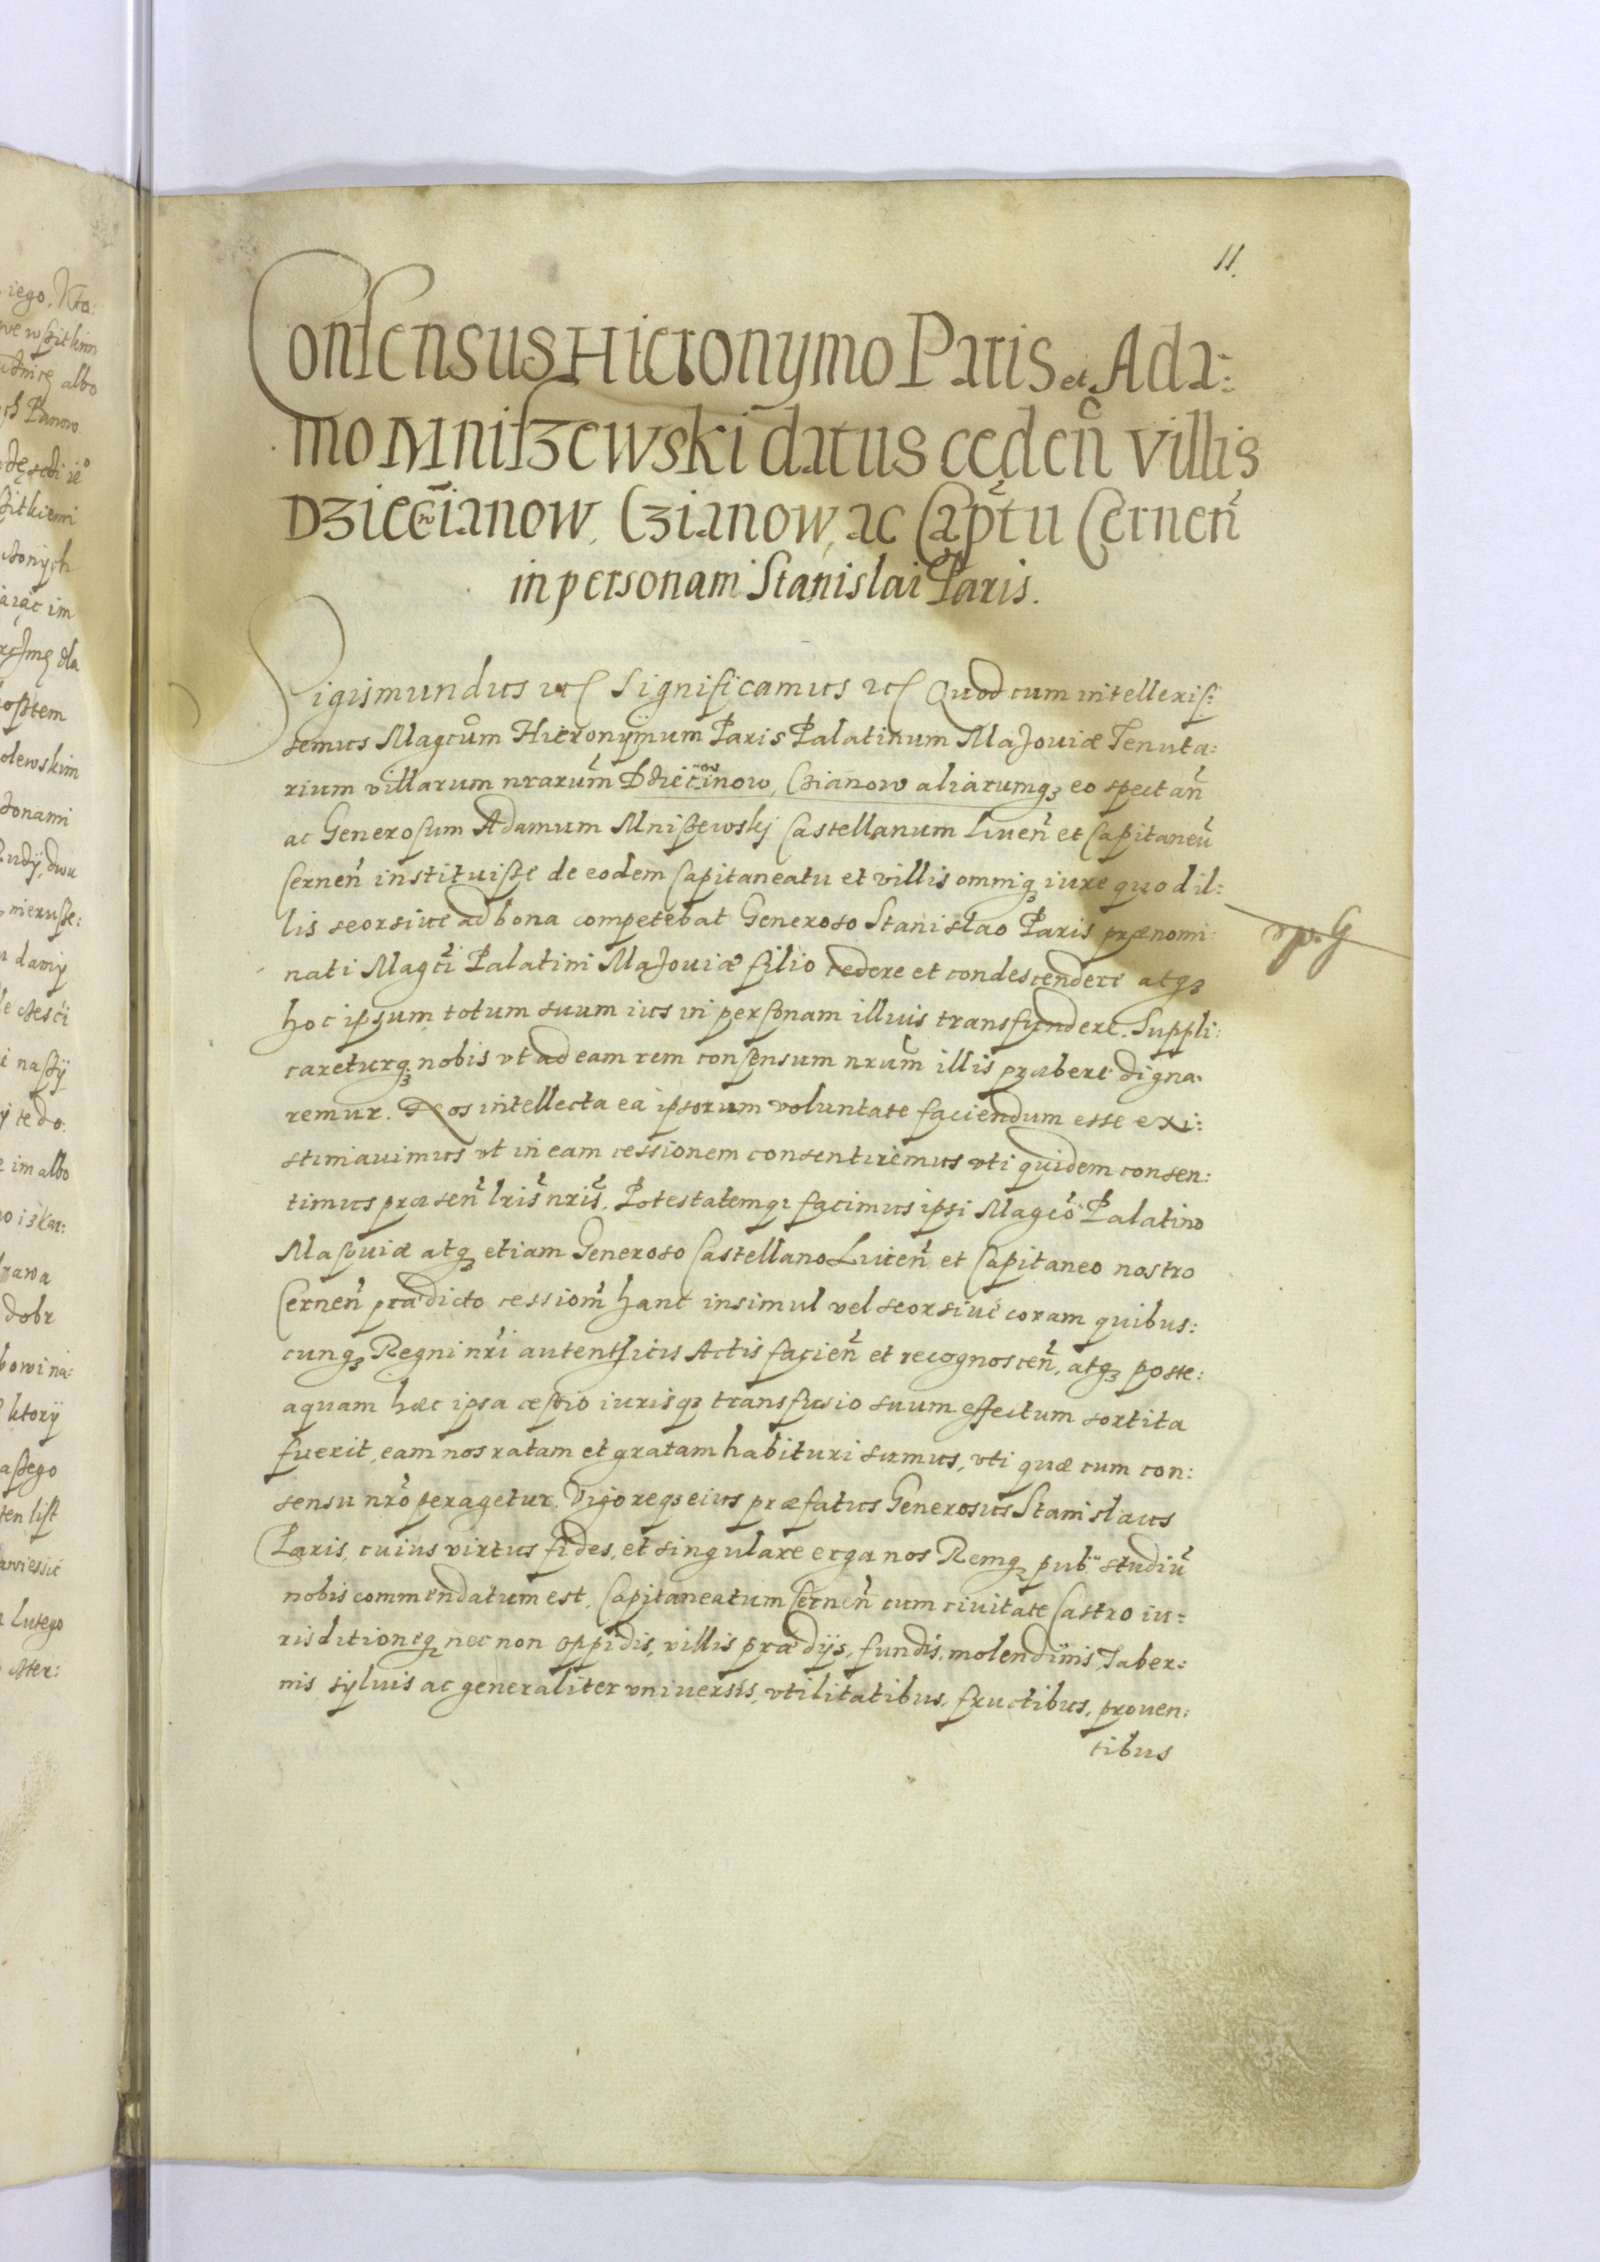 11.
Consensus Hieronymo Paris et Ada:
mo Mniszewski datus cedeñ Villis
Dziecianow, Czianow, ac Captu Cerneñ
in personam Stanislai Paris.
Sigismundus etc Significamus etc Quod cum intellexis:
semus Magcum Hieronymum Paris Palatinum Masouiæ Tenuta:
rium villarum nrarum Czianow aliarumq3 eo spectañ
ac Generosum Adamum Mniszewskj Castellanum Liueñ et Capitaneũ
Cerneñ instituisse de eodem Capitaneatu et villis omniq3 iure quod il:
lis seorsiue ad bona competebat Generoso Stanislao Paris prænomi:
nati Magci Palatini Masouiæ filio cedere et condescendere atq3
hoc ipsum totum suum ius in personam illius transfundere. Suppli:
careturq3 nobis vt ad eam rem consensum nrum illis præbere digna:
remur. Nos intellecta ea ipsorum voluntate faciendum esse exi:
stimauimus vt in eam cessionem consentiremus vti quidem consen:
timus præseñ lris nris. Potestatemq3 facimus ipsi Magco Palatino
Masouiæ atq3 etiam Generoso Castellano Liueñ et Capitaneo nostro
Cerneñ prædicto cessiom hanc insimul vel seorsiue coram quibus:
cunq3 Regni nri autenthicis Actis facieñ et recognosceñ, atq3 poste:
aquam hæc ipsa cessio iurisq3 transfusio suum effectum sortita
fuerit, eam nos ratam et gratam habituri sumus, vti quæ cum con:
sensu nro peragetur. Vigoreq3 eius præfatus Generosus Stanislaus
Paris, cuius virtus fides, et singulare erga nos Remq3 pub. studiũ
nobis commendatum est, Capitaneatum Cerneñ cum ciuitate Castro iu:
risditioneq3 nec non oppidis, villis prædijs, fundis, molendinis, Taber:
nis syluis ac generaliter vniuersis, vtilitatibus, fructibus, prouen:
tibus